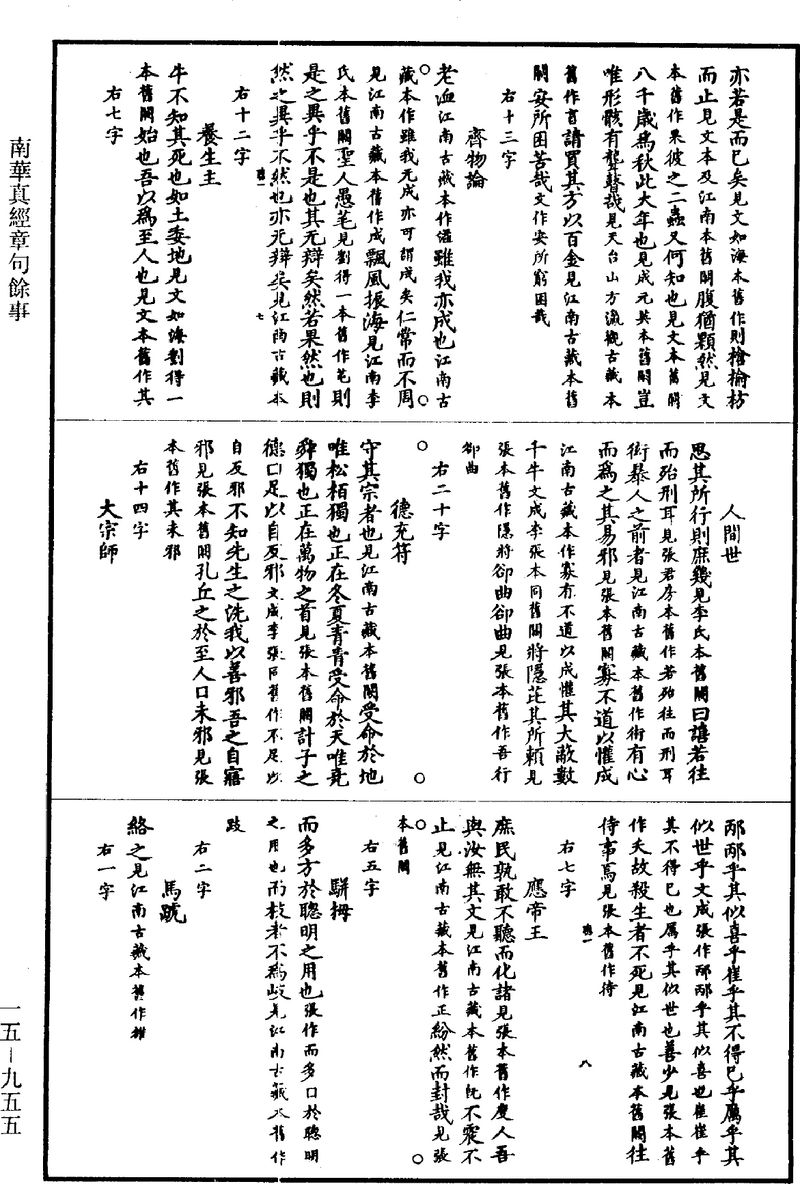 亦若是而已矣見文如海本舊作則槍榆枋
而止見文本及江南本舊闕腹猶顆然見文
本舊作果彼之二蟲又何知也見文本舊闕
八千歲為秋此大年也見成元英本舊闕豈
唯形骸有聾瞽哉見天台山方瀛觀古藏本
舊作盲請買其方以百金見江南古藏本舊
闕安所困苦哉文作安所窮困哉
右十三字
齊物論
老洫江南古藏本作溢雖我亦成也江南古
藏本作雖我无成亦可謂成矣仁常而不周
見江南古藏本舊作成飄風振海見江南李
氏本舊闕聖人愚芚見劉得一本舊作芚則
是之異乎不是也其无辯矣然若果然也則
然之異乎不然也亦无辯矣見江南古藏本
七
右十二字
養生主
牛不知其死也如土委地見文如海劉得一
本舊闕始也吾以為至人也見文本舊作其
右七字
人間世
思其所行則庶幾見李氏本舊闕曰譆若往
而殆刑耳見張君房本舊作若殆往而刑耳
衒暴人之前者見江南古藏本舊作術有心
而為之其易邪見張本舊闕寡不道以懽成
江南古藏本作寡有不道以成懽其大蔽數
千牛文成李張本同舊闕將隱芘其所賴見
張本舊作隱將郤曲郤曲見張本舊作吾行
郤曲
右二十字
德充符
守其宗者也見江南古藏本舊闕受命於地
唯松栢獨也正在冬夏青青受命於天唯堯
舜獨也正在萬物之首見張本舊闕計子之
德口足以自反邪文成李張同舊作不足以
自反邪不知先生之洗我以善邪吾之自寤
邪見張本舊闕孔丘之於至人口未邪見張
本舊作其未邪
右十四字
大宗師
邴邴乎其似喜乎崔乎其不得已乎厲乎其
似世乎文成張作邴邴乎其似喜也崔崔乎
其不得已也厲乎其似世也善少見張本舊
作夭故殺生者不死見江南古藏本舊闕往
侍事焉見張本舊作待
八
右七字
應帝王
庶民孰敢不聽而化諸見張本舊作度人吾
與汝無其文見江南古藏本舊作旣不震不
止見江南古藏本舊作正紛然而封哉見張
本舊闕
右五字
駢拇
而多方於聰明之用也張作而多口於聰明
之用也而枝者不為岐見江南古藏本舊作
跂
右二字
馬蹏
絡之見江南古藏本舊作雒
右一字
南華真經章句餘事
一五—九五五